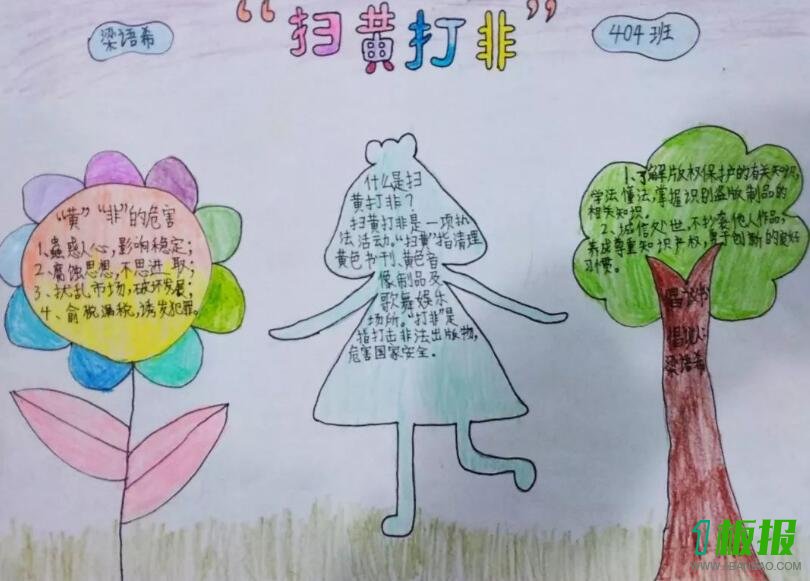 梁语希
“扫黄打非”
404班
“黄”“非”的危害
1、蛊惑人心,影响稳定;
2、腐蚀思想,不思进取;
3、扰乱市场,破坏发展;
4、偷税漏税,诱发犯罪。
什么是扫
黄打非?
扫黄打非是一项执
法活动。“扫黄”指清理
黄色书刊、黄色音
像制品及
歌舞娱乐
场所。“打非”是
指打击非法出版物,
危害国家安全.
1、了解版权保护的有关知识,
学法懂法,掌握识别盗版制品的
相关知识。
2、诚信处世,不抄袭他人作品,
养成尊重知识产权,勇于创新的良好
习惯。
倡议书
倡议人:
梁语希
1板报
WWW.1BANBAO.COM